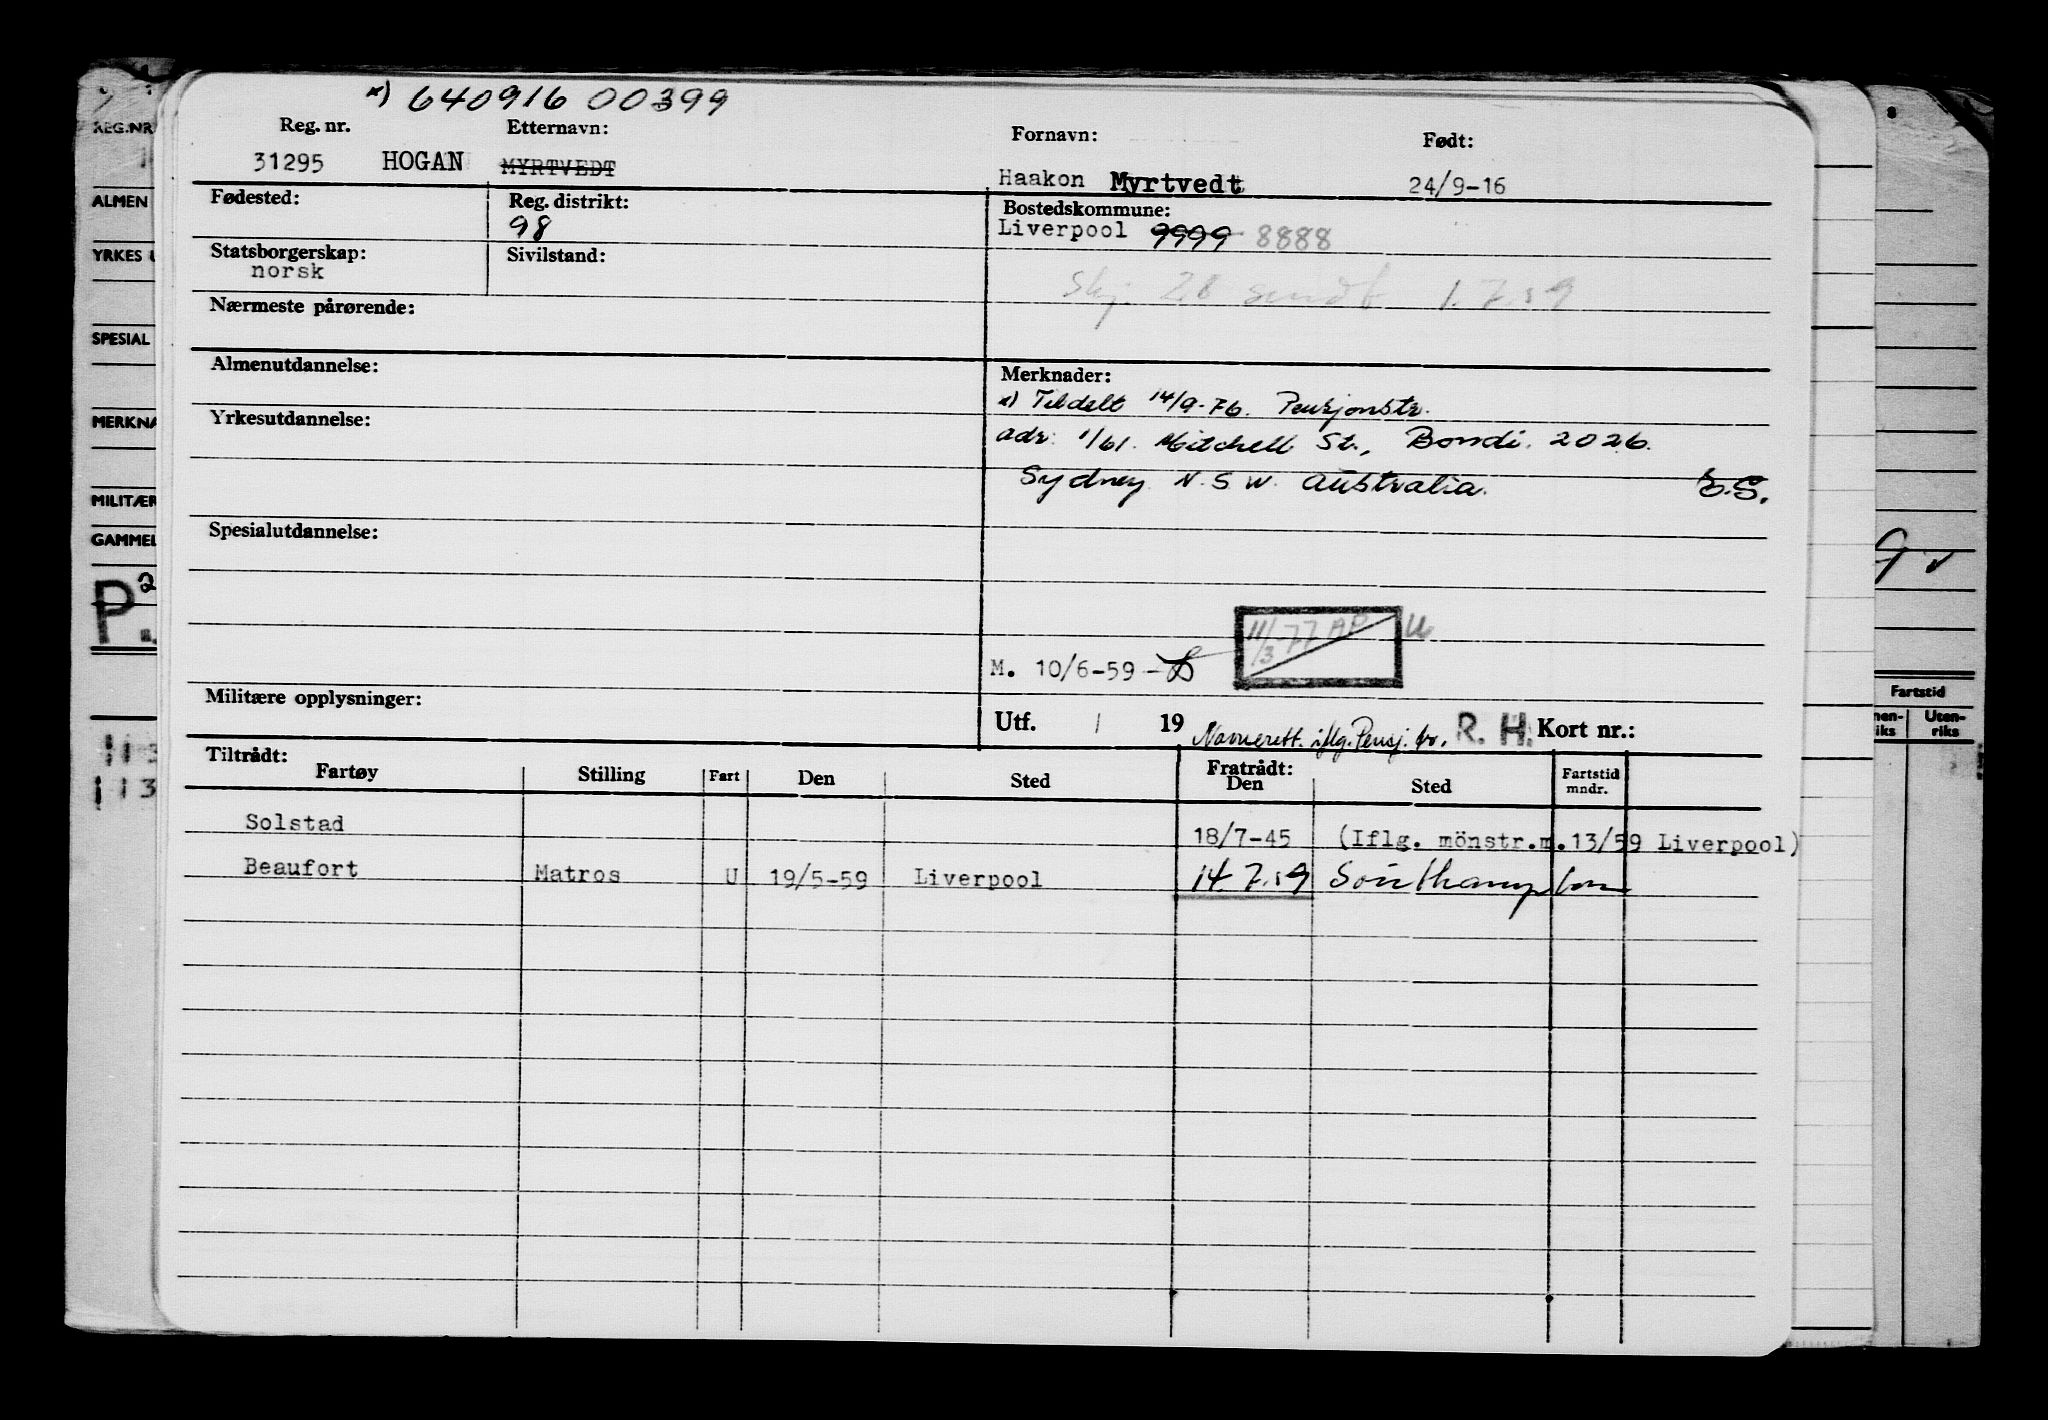 *) 640916 00399
Reg. nr. Etternavn: Fornavn: Født:
31295 HOGAN MYRTVEDT Haakon Myrtvedt 24/9-16
Fødested: Reg. distrikt: Bostedskommune:
98 Liverpool 9999 8888
Statsborgerskap: Sivilstand:
norsk
Skj. 28 sendt 1.7.59
Nærmeste pårørende:
Almenutdannelse: Merknader:
*) Tildelt 14/9-76. Pensjonstr.
Yrkesutdannelse: adr: 1/61. Mitchell St., Bondi. 2026.
Sydney N.S.W. Australia. E.S.
Spesialutdannelse:
11/3-77 AP
M. 10/6-59 -
Militære opplysninger:
Utf. / 19 Navnerett. iflg. Pensj. tr. R. H. Kort nr.:
Tiltrådt: Fratrådt:
Fartøy Stilling Fart Den Sted Den Sted Fartstid mndr.
Solstad 18/7-45 (Iflg. mönstr.m.13/59 Liverpool)
Beaufort Matros U 19/5-59 Liverpool 14.7.59 Southampton
REG.NR
ALMEN
YRKES U
SPESIAL
MERKNA
MILITÆR
GAMMEL
P. 2
113
113
9 v
Fartstid
nen-
iks
Uten-
riks